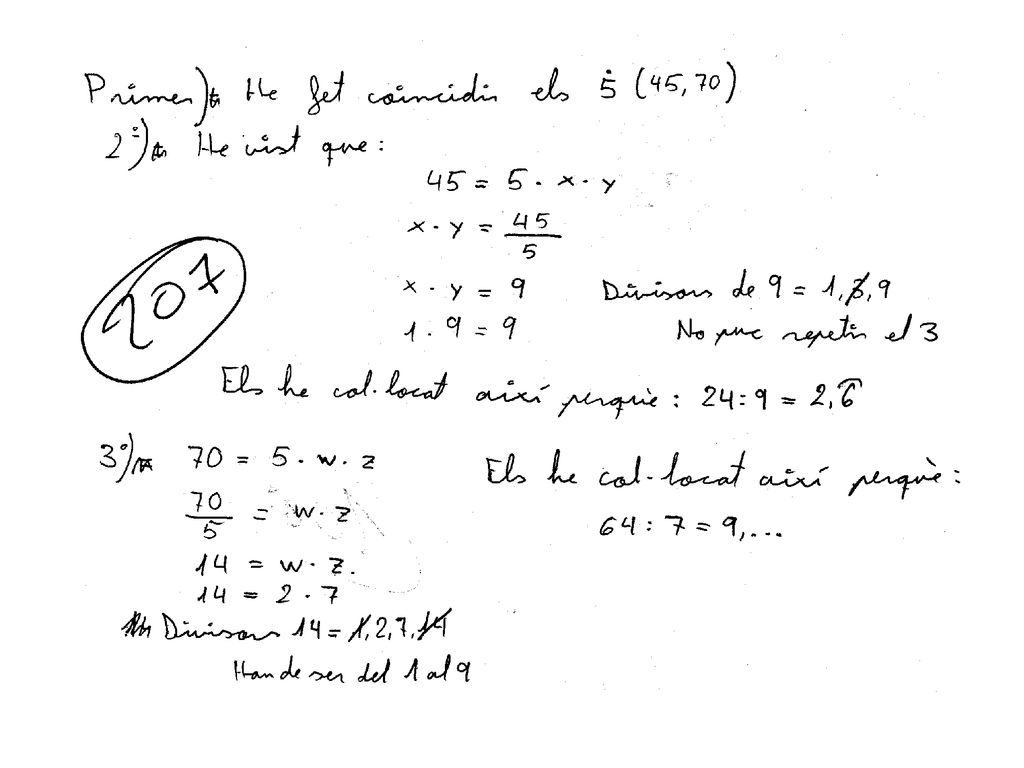 Primer) He fet coincidir els 5̇ (45,70)
2º) He vist que:
45 = 5 · x · y
x · y = 45/5
x · y = 9 Divisors de 9 = 1, 3, 9
1 · 9 = 9 No puc repetir el 3
207
Els he col·locat així perquè: 24 : 9 = 2,6̂
3º) 70 = 5 · w · z Els he col·locat així perquè:
70/5 = w · z 64 : 7 = 9,...
14 = w · z.
14 = 2 · 7
Divisors 14 = 1, 2, 7, 14
Han de ser del 1 al 9